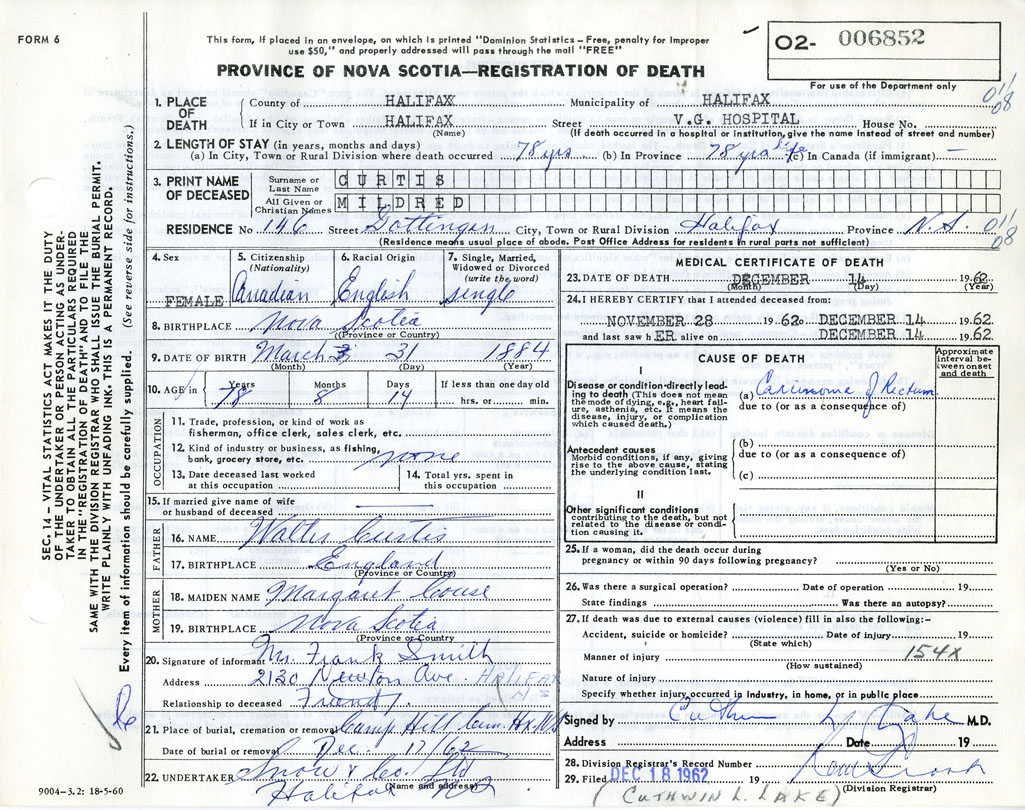 FORM 6
This form, if placed in an envelope, on which is printed "Dominion Statistics – Free, penalty for improper
use $50," and properly addressed will pass through the mail "FREE"
PROVINCE OF NOVA SCOTIA—REGISTRATION OF DEATH
O2- 006852
For use of the Department only
01/08
SEC. 14 – VITAL STATISTICS ACT MAKES IT THE DUTY
OF THE UNDERTAKER OR PERSON ACTING AS UNDER-
TAKER TO OBTAIN ALL THE PARTICULARS REQUIRED
IN THE "REGISTRATION OF DEATH" AND TO FILE THE
SAME WITH THE DIVISION REGISTRAR WHO SHALL ISSUE THE BURIAL PERMIT.
WRITE PLAINLY WITH UNFADING INK. THIS IS A PERMANENT RECORD.
Every item of information should be carefully supplied. (See reverse side for instructions.)
1. PLACE OF DEATH
County of HALIFAX Municipality of HALIFAX
If in City or Town HALIFAX Street V.G. HOSPITAL House No.
(Name) (If death occurred in a hospital or institution, give name instead of street and number)
2. LENGTH OF STAY (in years, months and days)
(a) In City, Town or Rural Division where death occurred 78 yrs (b) In Province 78 yrs life (c) In Canada (if immigrant) —
3. PRINT NAME OF DECEASED
Surname or Last Name CURTIS
All Given or Christian Names MILDRED
RESIDENCE No 146 Street Gottingen City, Town or Rural Division Halifax Province N.S. 01/08
(Residence means usual place of abode. Post Office Address for residents in rural parts not sufficient)
4. Sex
FEMALE
5. Citizenship (Nationality)
Canadian
6. Racial Origin
English
7. Single, Married, Widowed or Divorced (write the word)
single
8. BIRTHPLACE Nova Scotia
(Province or Country)
9. DATE OF BIRTH March 31 1884
(Month) (Day) (Year)
10. AGE in Years Months Days If less than one day old
78 8 14 hrs. or min.
OCCUPATION
11. Trade, profession, or kind of work as
fisherman, office clerk, sales clerk, etc.
12. Kind of industry or business, as fishing,
bank, grocery store, etc. none
13. Date deceased last worked at this occupation
14. Total yrs. spent in this occupation
15. If married give name of wife
or husband of deceased —
FATHER
16. NAME Walter Curtis
17. BIRTHPLACE England
(Province or Country)
MOTHER
18. MAIDEN NAME Margaret Couse
19. BIRTHPLACE Nova Scotia
(Province or Country
20. Signature of informant Mr. Frank Smith
Address 2130 Newton Ave. HALIFAX N.S
Relationship to deceased Friend
21. Place of burial, cremation or removal Camp Hill Cem. Hx, NS
Date of burial or removal Dec. 17/62
22. UNDERTAKER Snow & Co. Ltd
(Name and address)
Halifax NS
9004–3.2: 18-5-60
MEDICAL CERTIFICATE OF DEATH
23. DATE OF DEATH DECEMBER 14 1962
(Month) (Day) (Year)
24. I HEREBY CERTIFY that I attended deceased from:
NOVEMBER 28 1962 to DECEMBER 14 1962
and last saw hER alive on DECEMBER 14 1962
CAUSE OF DEATH
Approximate interval between onset and death
I
Disease or condition directly lead-
ing to death (This does not mean
the mode of dying, e.g., heart fail-
ure, asthenia, etc. It means the
disease, injury, or complication
which caused death.)
(a) Carcinoma of Rectum
due to (or as a consequence of)
(b)
due to (or as a consequence of)
(c)
Antecedent causes
Morbid conditions, if any, giving
rise to the above cause, stating
the underlying condition last.
II
Other significant conditions
contributing to the death, but not
related to the disease or condi-
tion causing it.
25. If a woman, did the death occur during
pregnancy or within 90 days following pregnancy?
(Yes or No)
26. Was there a surgical operation? Date of operation 19
State findings Was there an autopsy?
27. If death was due to external causes (violence) fill in also the following:–
Accident, suicide or homicide? Date of injury 19
(State which)
Manner of injury 154X
(How sustained)
Nature of injury
Specify whether injury occurred in industry, in home, or in public place
Signed by Cuthwin L. Lake M.D.
Address Date 19
28. Division Registrar's Record Number
29. Filed DEC 18 1962 19
(Division Registrar)
(CUTHWIN L. LAKE)